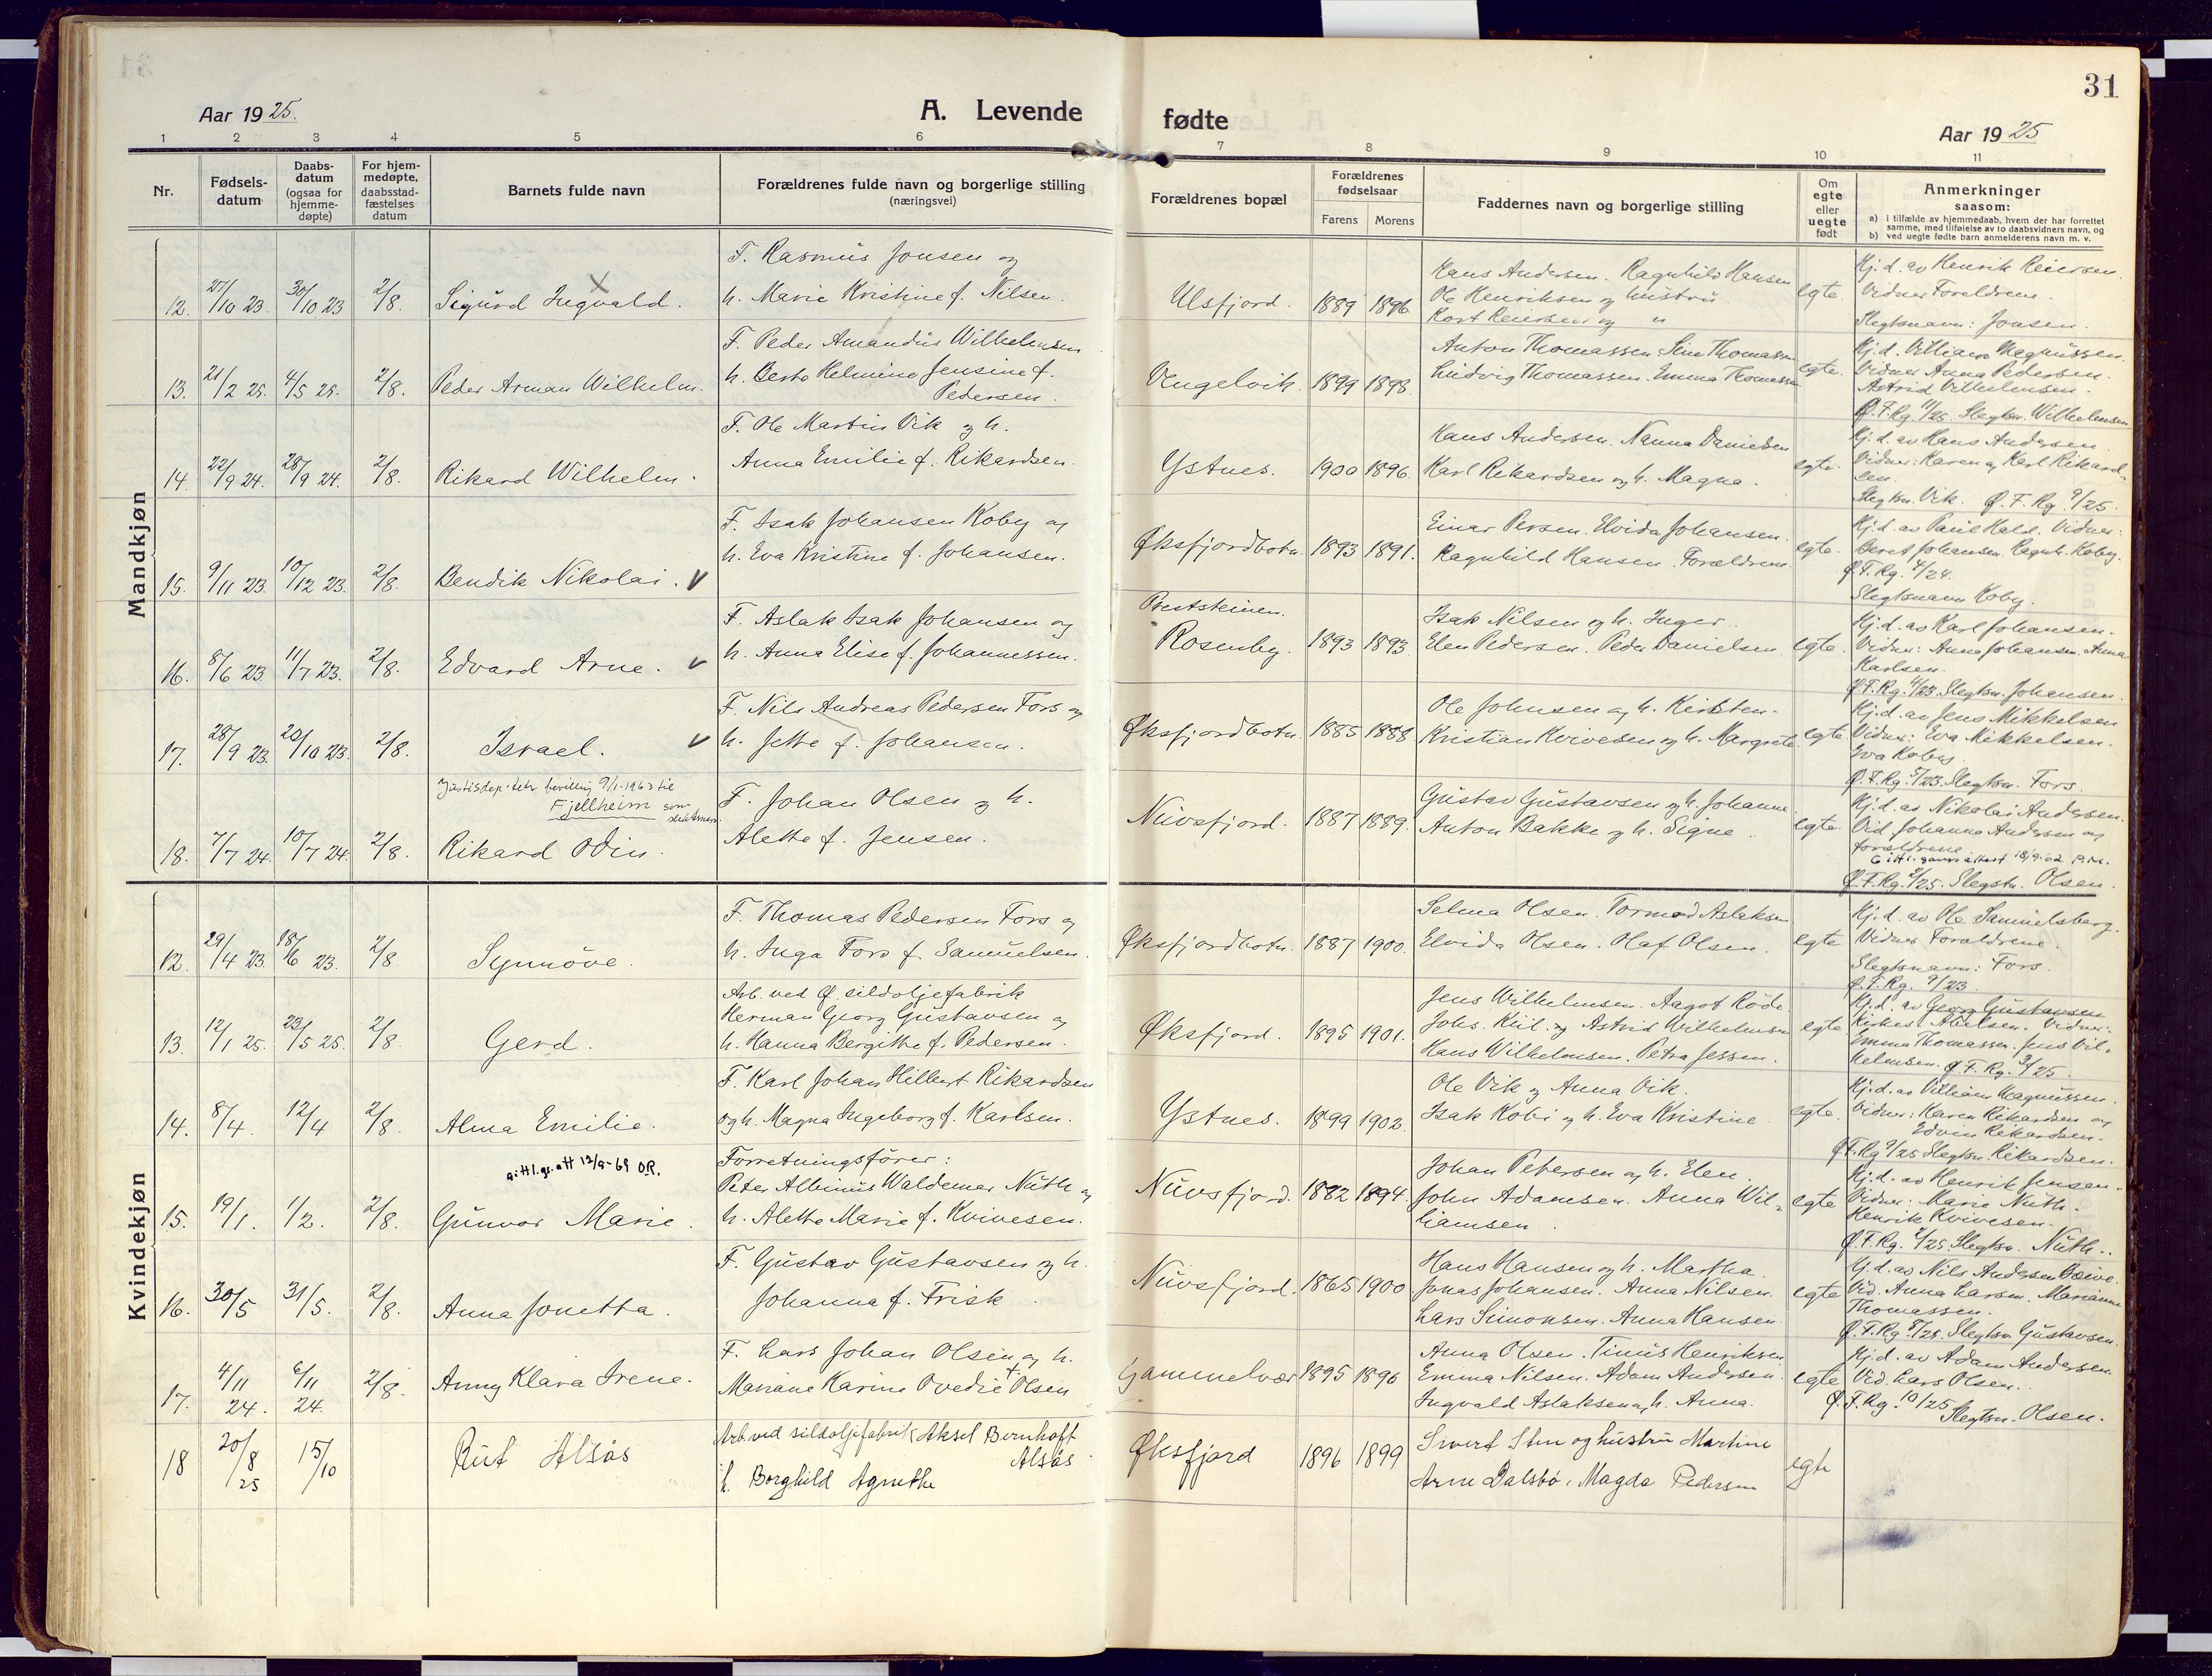 31
Aar 1925.
A. Levende fødte
Aar 1925
1 2 3 4 5 6 7 8 9 10 11
Nr.
Fødsels-datum
Daabs-datum (ogsaa for hjemme-døpte)
For hjem-medøpte, daabsstad-fæstelses datum
Barnets fulde navn
Forældrenes fulde navn og borgerlige stilling (næringsvei)
Forældrenes bopæl
Forældrenes fødselsaar
Farens Morens
Faddernes navn og borgerlige stilling
Om egte eller uegte født
Anmerkninger saasom:
a) i tilfælde av hjemmedaab, hvem der har forrettet samme, med tilføielse av to daabsvidners navn, og
b) ved uegte fødte barn anmelderens navn m. v.
Mandkjøn
12. 27/10 23. 30/10 23 2/8. Sigurd Ingvald.
F. Rasmus Jonsen og
h. Marie Kristine f. Nilsen.
Ulsfjord. 1889 1896
Hans Andersen. Ragnhild Hansen
Ole Henriksen og hustru
Kort Reiersen og "
egte.
Hj. d. av Henrik Reiersen.
Vidner Foreldrene.
Slegtsnavn: Jonsen.
13. 21/2 25. 4/5 25. 2/8. Peder Arman Wilhelm.
F. Peder Amandus Wilhelmsen
h. Berto Helmine Jensine f.
Pedersen.
Vengelvik. 1899 1898
Anton Thomassen Sine Thomassen
Ludvig Thomassen. Emma Thomassen
egte.
Hj. d. Villiam Magnussen.
Vidner Anna Pedersen.
Astrid Vilhelmsen.
Ø. F. Rg. 11/25 Slegtsn. Wilhelmsen
14. 22/9 24. 28/9 24. 2/8. Rikard Wilhelm.
F. Ole Martin Vik og h.
Anna Emilie f. Rikardsen.
Ystnes. 1900 1896.
Hans Andersen. Nanna Danielsen
Karl Rikardsen og h. Magna.
egte.
Hj. d. av Hans Andersen
Vidner: Karen og Karl Rikard-
sen.
Slegtsn. Vik. Ø. F. Rg. 9/25.
15. 9/11 23. 10/12 23. 2/8. Bendik Nikolai. V
F. Isak Johansen Koby og
h. Eva Kristine f. Johansen.
Øksfjordbotn. 1893 1891.
Einar Persen. Elvida Johansen.
Ragnhild Hansen. Forældrene
egte.
Hj. d. av Paul Hald. Vidner:
Beret Johansen Ragnh. Koby.
Ø. F. Rg. 4/24.
Slegtsnavn Koby.
16. 8/6 23. 11/7 23. 2/8. Edvard Arne. V
F. Aslak Isak Johansen og
h. Anna Elise f. Johannessen.
Preststeinen.
Rosenby. 1893 1893
Isak Nilsen og h. Inger.
Elen Pedersen. Peder Danielsen
egte.
Hj. d. av Karl Johansen.
Vidner: Anna Johansen. Anna
Karlsen.
Ø. F. Rg. 4/23. Slegtsn. Johansen.
17. 28/9 23. 20/10 23. 2/8. Israel. V
F. Nils Andreas Pedersen Fors og
h. Jette f. Johansen.
Øksfjordbotn. 1885 1888
Ole Johnsen og h. Kirsten.
Kristian Kvivesen og h. Margrete
egte
Hj. d. av Jens Mikkelsen
Vidner: Eva Mikkelsen.
Eva Koby.
Ø. F. Rg. 5/23. Slegtsn. Fors.
Justisdep. bevilling 9/1-1963 til
Fjellheim som slektsnavn.
18. 7/7 24. 10/7 24. 2/8. Rikard Odin.
F. Johan Olsen og h.
Alette f. Jensen.
Nuvsfjord. 1887 1889.
Gustav Gustavsen og h. Johanne.
Anton Bakke og h. Signe.
egte.
Hj. d. av Nikolai Andersen.
Vid. Johanna Andersen og
foreldrene
attest 18/9-62
Ø. F. Rg. 2/25. Slegtsn. Olsen.
Kvindekjøn
12. 29/4 23. 18/6 23. 2/8 Synnöve.
F. Thomas Pedersen Fors og
h. Inga Fors f. Samuelsen.
Øksfjordbotn. 1887 1900.
Selma Olsen. Tormod Aslaksen
Elvida Olsen. Olaf Olsen.
egte
Hj. d. av Ole Samuelsberg.
Vidner Foreldrene.
Slegtsnavn: Fors.
Ø. F. Rg. 9/23.
13. 12/1 25. 23/5 25. 2/8 Gerd.
Arb. ved Ø. sildoljefabrik
Herman Georg Gustavsen og
h. Hanna Bergitte f. Pedersen.
Øksfjord. 1895 1901.
Jens Wilhelmsen. Aagot Röde
Johs. Kiil og Astrid Wilhelmsen
Hans Wilhelmsen. Petra Jessen.
egte
Hj. d. av Georg Gustavsen
Vidner:
Emma Thomassen. Jens Vil-
helmsen. Ø. F. Rg. 3/25.
14. 8/4. 12/4 2/8 Alma Emilie.
F. Karl Johan Hilbert Rikardsen
og h. Magna Ingeborg f. Karlsen.
Ystnes. 1899 1902.
Ole Vik og Anna Vik.
Isak Kobi og h. Eva Kristine
egte.
Hj. d. av Villiam Magnussen.
Vidner: Karen Rikardsen og
Edvin Rikardsen.
Ø. F. Rg. 9/25 Slegtsn. Rikardsen.
15. 19/1. 1/2. 2/8. Gunvor Marie.
att 12/9-69 O.R.
Forretningsfører:
Peter Albinus Waldemar Nuth og
h. Alette Marie f. Kvivesen.
Nuvsfjord. 1882 1894.
Johan Petersen og h. Elen.
John Adamsen. Anna Wil-
liamsen.
egte
Hj. d. av Henrik Jensen.
Vidner: Marie Nuth.
Henrik Kvivesen.
Ø. F. Rg. /25. Slegtsn. Nuth.
16. 30/5 31/5. 2/8. Anna Jonetta.
F. Gustav Gustavsen og h.
Johanna f. Frisk.
Nuvsfjord. 1865 1900
Hans Hansen og h. Martha.
Jonas Johansen. Anna Nilsen.
Lars Simonsen. Anna Hansen
egte
Hj. d. av Nils Andersen
Vid. Anna Larsen. Marianne
Thomassen.
Ø. F. Rg. 8/25. Slegtsn Gustavsen.
17. 4/11 24. 6/11 24. 2/8. Anny Klara Irene.
F. Lars Johan Olsen og h.
Mariane Karine Ovedie Olsen
Gammelvær 1895 1896
Anna Olsen. Tinus Henriksen
Emma Nilsen. Adam Andersen.
Ingvald Aslaksen og h. Anna.
egte
Hj. d. av Adam Andersen.
Vid. Lars Olsen.
Ø. F. Rg. 10/25 Slegtsn. Olsen.
18 20/8 25 15/10 Rut Alsös
Arb. ved sildoljefabrik Aksel Bernhoft
Alsös.
h. Borghild Agnethe
Øksfjord 1896 1899
Sivert Sten og hustru Martine
Arne Dalsbö, Magda Pedersen
egte